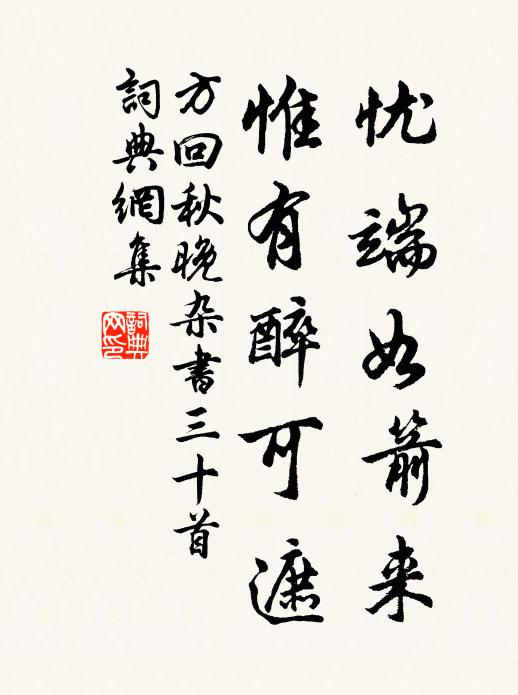 忧端如箭来
惟有醉可遮
方回秋晚杂书三十首
詞典網集
詞典網印